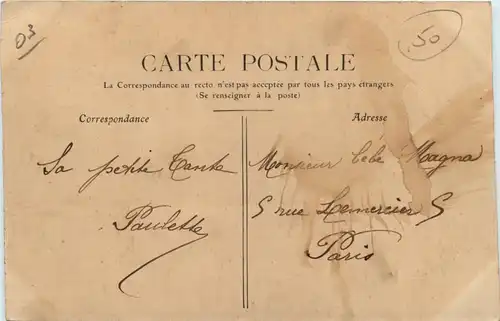 03
50
CARTE POSTALE
La Correspondance au recto n'est pas acceptée par tous les pays étrangers
(Se renseigner à la poste)
Correspondance
Adresse
Sa petite Tante
Paulette
Monsieur bébé Magna
5 rue Lemercier 5
Paris